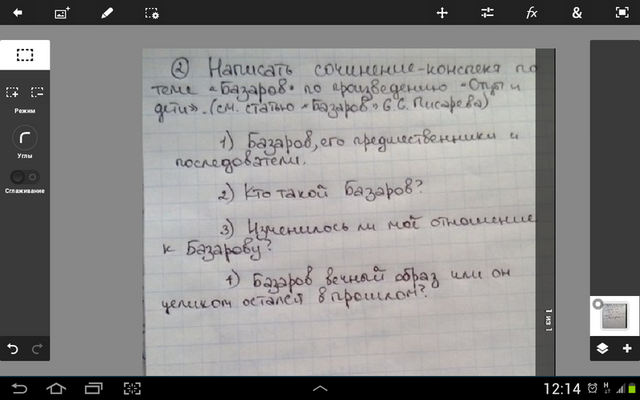 fx
&
② Написать сочинение-конспект по
теме «Базаров» по произведению «Отцы и
дети». (см. статью «Базаров» Д.С. Писарева)
1) Базаров, его предшественники и
последователи.
2) Кто такой Базаров?
3) Изменилось ли моё отношение
к Базарову?
4) Базаров вечный образ или он
целиком остался в прошлом?
Режим
Углы
Сглаживание
1 из 1
12:14